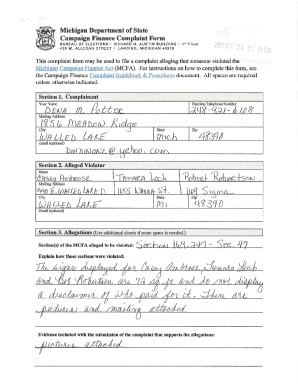 Michigan Department of State
Campaign Finance Complaint Form
BUREAU OF ELECTIONS • RICHARD H. AUSTIN BUILDING • 1ST Floor
430 W. ALLEGAN STREET • LANSING, MICHIGAN 48918
This complaint form may be used to file a complaint alleging that someone violated the
Michigan Campaign Finance Act (MCFA). For instructions on how to complete this form, see
the Campaign Finance Complaint Guidebook & Procedures document. All spaces are required
unless otherwise indicated.
Section 1. Complainant
Your Name Daytime Telephone Number
Dena M. Potter 248-921-6108
Mailing Address
1856 Meadow Ridge
City State Zip
Walled Lake Mich 48390
Email (optional)
@yahoo.com
Section 2. Alleged Violator
Name
Casey Ambrose Tamara Loch Robert Robertson
Mailing Address
E Walled Lake D 1155 St. 1169 Sigma
City State Zip
Walled Lake Mi 48390
Email (optional)
Section 3. Allegations (Use additional sheets if more space is needed.)
Section(s) of the MCFA alleged to be violated: Section 169.247 - Sec. 47
Explain how those sections were violated:
The signs displayed for Casey Ambrose, Tamara Loch
and Rob Robertson are sq ft and do not display
a disclaimer of who paid for it. There are
pictures and mailing attached.
Evidence included with the submission of the complaint that supports the allegations:
pictures attached